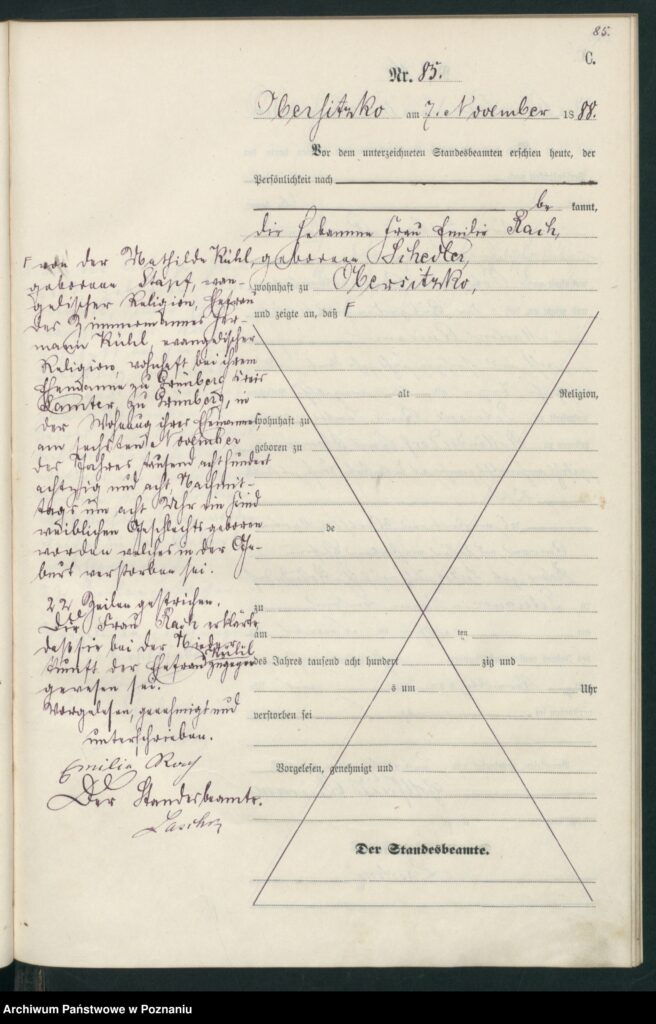 85.
C.
Nr. 85.
Obersitzko am 7. November 1888.
Vor dem unterzeichneten Standesbeamten erschien heute, der
Persönlichkeit nach
be kannt,
die Hebamme Frau Emilie Rach,
geborene Schedler,
wohnhaft zu Obersitzko,
und zeigte an, daß F
F von der Mathilde Kühl,
geborene Stapf, evan-
gelischer Religion, Ehefrau
des Zimmermannes Her-
mann Kühl, evangelischer
Religion, wohnhaft bei ihrem
Ehemanne zu Grünberg Kreis
Samter, zu Grünberg, in
der Wohnung ihres Ehemannes
am sechsten November
des Jahres tausend acht hundert
achtzig und acht, Nachmit-
tags um acht Uhr ein Kind
weiblichen Geschlechts geboren
worden welches in der Ge-
burt verstorben sei.
22 Zeilen gestrichen.
Die Frau Rach erklärte
daß sie bei der Nieder-
kunft der Ehefrau Kühl zugegen
gewesen sei.
Vorgelesen, genehmigt und
unterschrieben.
Emilie Rach
Der Standesbeamte.
alt Religion,
wohnhaft zu
geboren zu
de
zu
am ten
des Jahres tausend acht hundert zig und
s um Uhr
verstorben sei
Vorgelesen, genehmigt und
Der Standesbeamte.
Archiwum Państwowe w Poznaniu